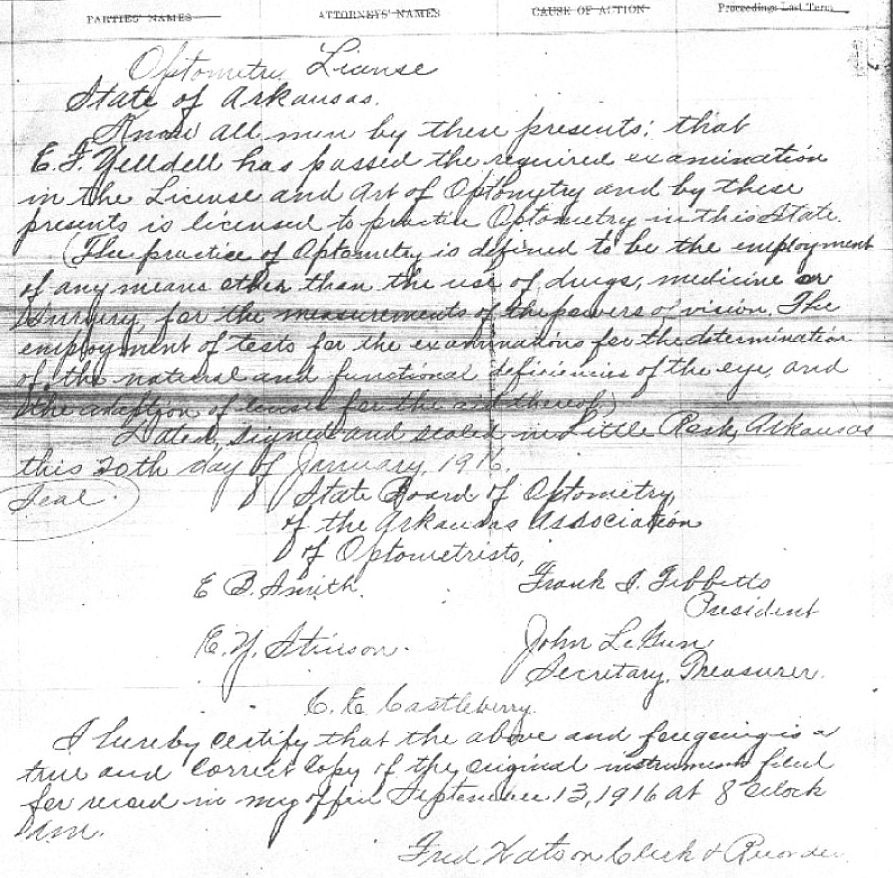 PARTIES' NAMES ATTORNEYS' NAMES CAUSE OF ACTION Proceedings Last Term
Optometry License
State of Arkansas.
Know all men by these presents; that
E. F. Yelldell has passed the required examination
in the License and Art of Optometry and by these
presents is licensed to practice Optometry in this State.
(The practice of Optometry is defined to be the employment
of any means other than the use of drugs, medicine or
surgery, for the measurements of the powers of vision, The
employment of tests for the examinations for the determination
of the natural and functional deficiencies of the eye, and
the adaption of lenses for the aid thereof)
Dated, signed and sealed in Little Rock, Arkansas
this 20th day of January, 1916.
Seal.
State Board of Optometry
of the Arkansas Association
of Optometrists,
E B. Smith. Frank I. Tibbetts
President
E. Y. Stinson. John LeGun
Secretary, Treasurer.
C. E. Castleberry.
I hereby certify that the above and foregoing is a
true and correct copy of the original instrument filed
for record in my office September 13, 1916 at 8 oclock
am.
Fred Watson Clerk & Recorder